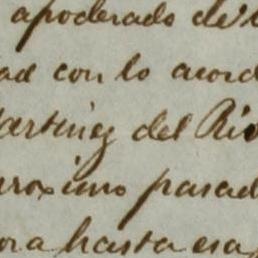 apoderado de
ad con lo acord
artinez del Rio
roximo pasad
ora hasta esa